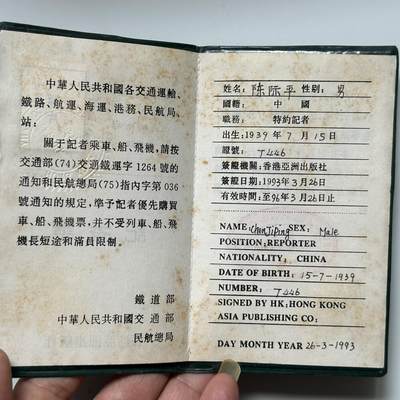 中華人民共和國各交通運輸、
鐵路、航運、海運、港務、民航局、
站:
關于記者乘車、船、飛機,請按
交通部(74)交通鐵運字1264號的
通知和民航總局(75)指内字第036
號通知的規定,準予記者優先購買
車、船、飛機票,并不受列車、船、飛
機長短途和滿員限制。
鐵道部
中華人民共和國交通部
民航總局
姓名:陈际平性别:男
國籍:中國
職務:特約記者
出生:1939年7月15日
證號:T446
簽證機關:香港亞洲出版社
簽證日期:1993年3月26日
有效時間:至96年3月26日止
NAME:ChenJiPingSEX:Male
POSITION:REPORTER
NATIONALITY: CHINA
DATE OF BIRTH:15-7-1939
NUMBER:T446
SIGNED BY HK:HONG KONG
ASIA PUBLISHING CO:
DAY MONTH YEAR 26-3-1993